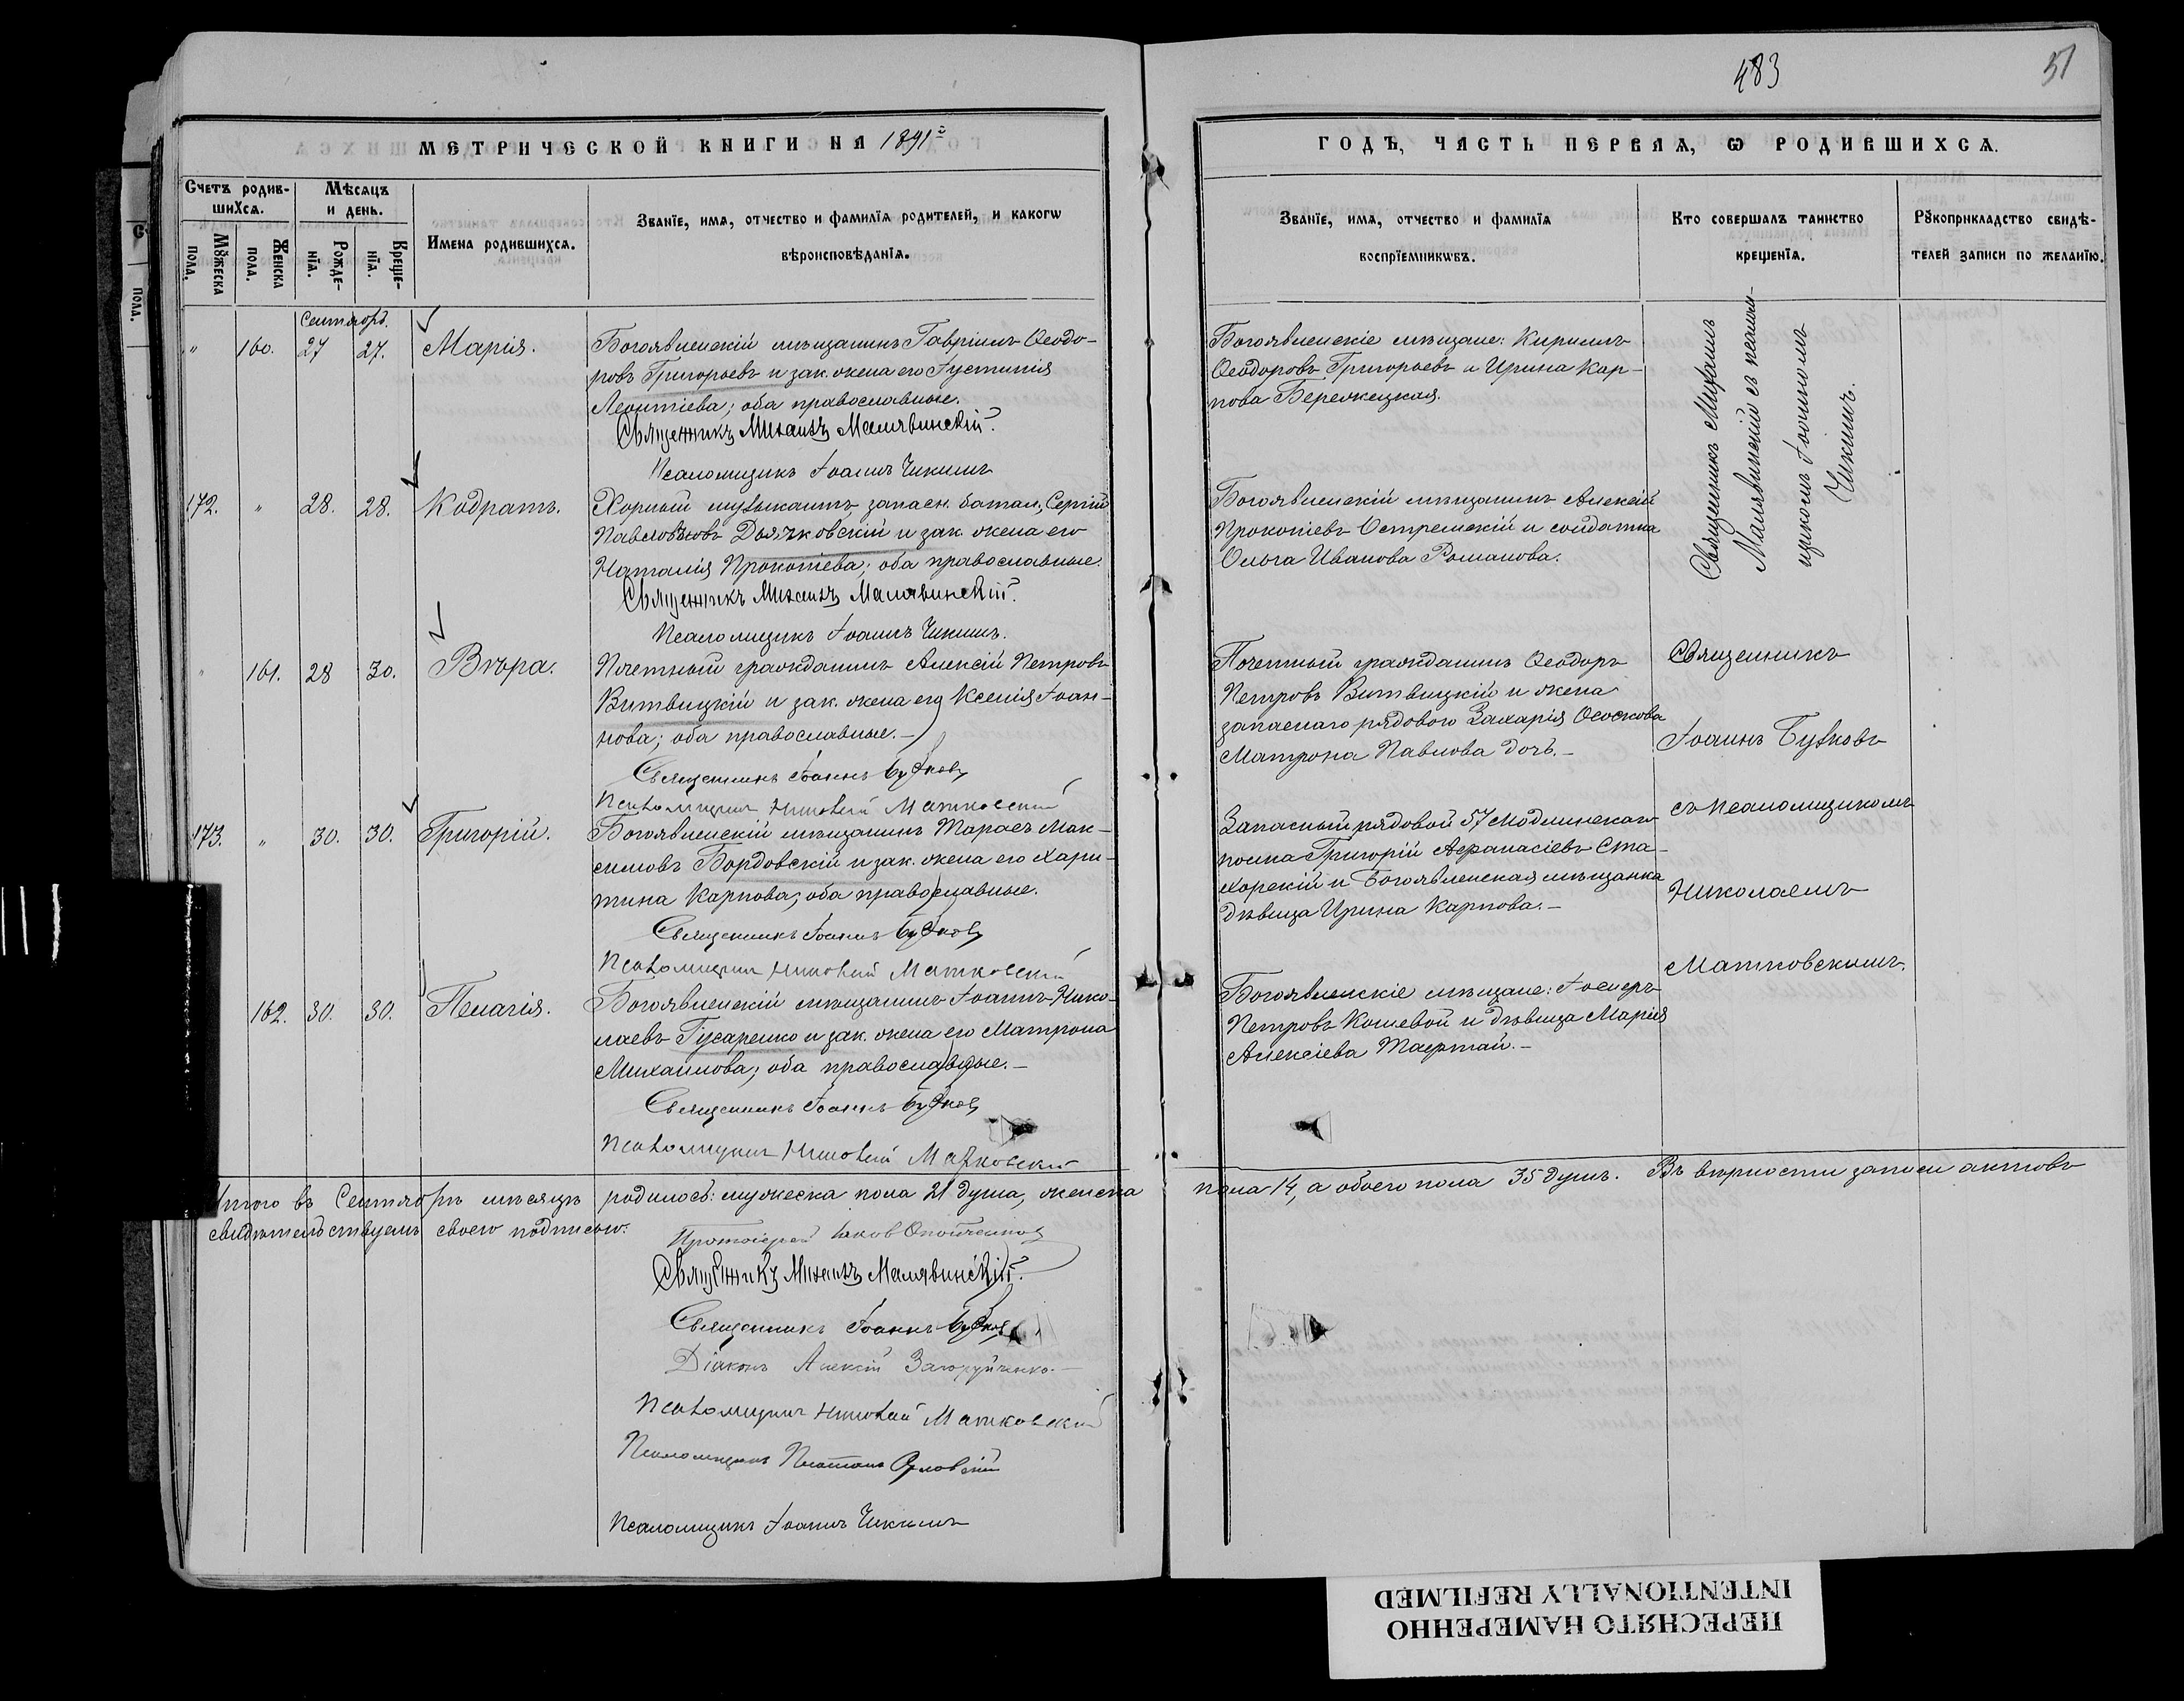 483
51
МЕТРИЧЕСКОЙ КНИГИ НА 1891 г
ГОДЪ, ЧАСТЬ ПЕРВАЯ, Ѡ РОДИВШИХСЯ.
Счетъ родив-
шихся.
Мѣсяцъ
и день.
Мꙋжеска
пола.
Женска
пола.
Рожде-
нїя.
Креще-
нїя.
Имена родившихся.
Званїе, имя, отчество и фамилїя родителей, и какогѡ
вѣроисповѣданїя.
Званїе, имя, отчество и фамилїя
воспрїемникѡвъ.
Кто совершалъ таинство
крещенїя.
Рꙋкоприкладство свидѣ-
телей записи по желанїю.
Сентябрь.
" 160. 27 27. Марія.
Богоявленскій мѣщанинъ Гавріилъ Ѳеодо-
ровъ Григорьевъ и зак. жена его Іустинія
Леонтіева; оба православные.
Священникъ Михаилъ Малявинскій.
Псаломщикъ Іоаннъ Чикинъ
Богоявленскіе мѣщане: Кириллъ
Ѳеодоровъ Григорьевъ и Ирина Кар-
пова Бережецкая.
Священникъ Михаилъ
Малявинскій съ псалом-
щикомъ Іоанномъ
Чикинъ.
172. " 28. 28. Кодратъ.
Хорный музыкантъ запасн. батал. Сергій
Павловъ Дьячковскій и зак. жена его
Наталія Прокопіева; оба православные.
Священникъ Михаилъ Малявинскій.
Псаломщикъ Іоаннъ Чикинъ.
Богоявленскій мѣщанинъ Алексій
Прокопіевъ Остремскій и солдатка
Ольга Иванова Романова.
" 161. 28 30. Вѣра.
Почетный гражданинъ Алексій Петровъ
Витвицкій и зак. жена его Ксенія Іоан-
нова; оба православные.-
Священникъ Іоаннъ Бузковъ
Псаломщикъ Николай Матковскій
Почетный гражданинъ Ѳеодоръ
Петровъ Витвицкій и жена
запаснаго рядового Захарія Ососкова
Матрона Павлова дочь.-
Священникъ
Іоаннъ Бузковъ
съ псаломщикомъ
Николаемъ
Матковскимъ.
173. " 30. 30. Григорій.
Богоявленскій мѣщанинъ Тарасъ Мак-
симовъ Бордовскій и зак. жена его Хари-
тина Карпова; оба православные.
Священникъ Іоаннъ Бузковъ
Псаломщикъ Николай Матковскій
Запасный рядовой 57 Модлинскаго
полка Григорій Аѳанасіевъ Ста-
хорскій и Богоявленская мѣщанка
дѣвица Ирина Карпова.-
162. 30. 30. Пелагія.
Богоявленскій мѣщанинъ Іоаннъ Нико-
лаевъ Гусаренко и зак. жена его Матрона
Михаилова; оба православные.-
Священникъ Іоаннъ Бузковъ
Псаломщикъ Николай Матковскій
Богоявленскіе мѣщане: Іосифъ
Петровъ Кошевой и дѣвица Марія
Алексіева
Итого въ Сентябрѣ мѣсяцѣ родилось: мужеска пола 21 душа, женска
пола 14, а обоего пола 35 душъ. Въ вѣрности записи актовъ
свидѣтельствуемъ своею подписью:
Протоіерей Іаковъ
Священникъ Михаилъ Малявинскій.
Священникъ Іоаннъ Бузковъ
Діаконъ Алексій Загоруйченко.-
Псаломщикъ Николай Матковскій
Псаломщикъ Платонъ Орловскій
Псаломщикъ Іоаннъ Чикинъ
ПЕРЕСНЯТО НАМЕРЕННО
INTENTIONALLY REFILMED